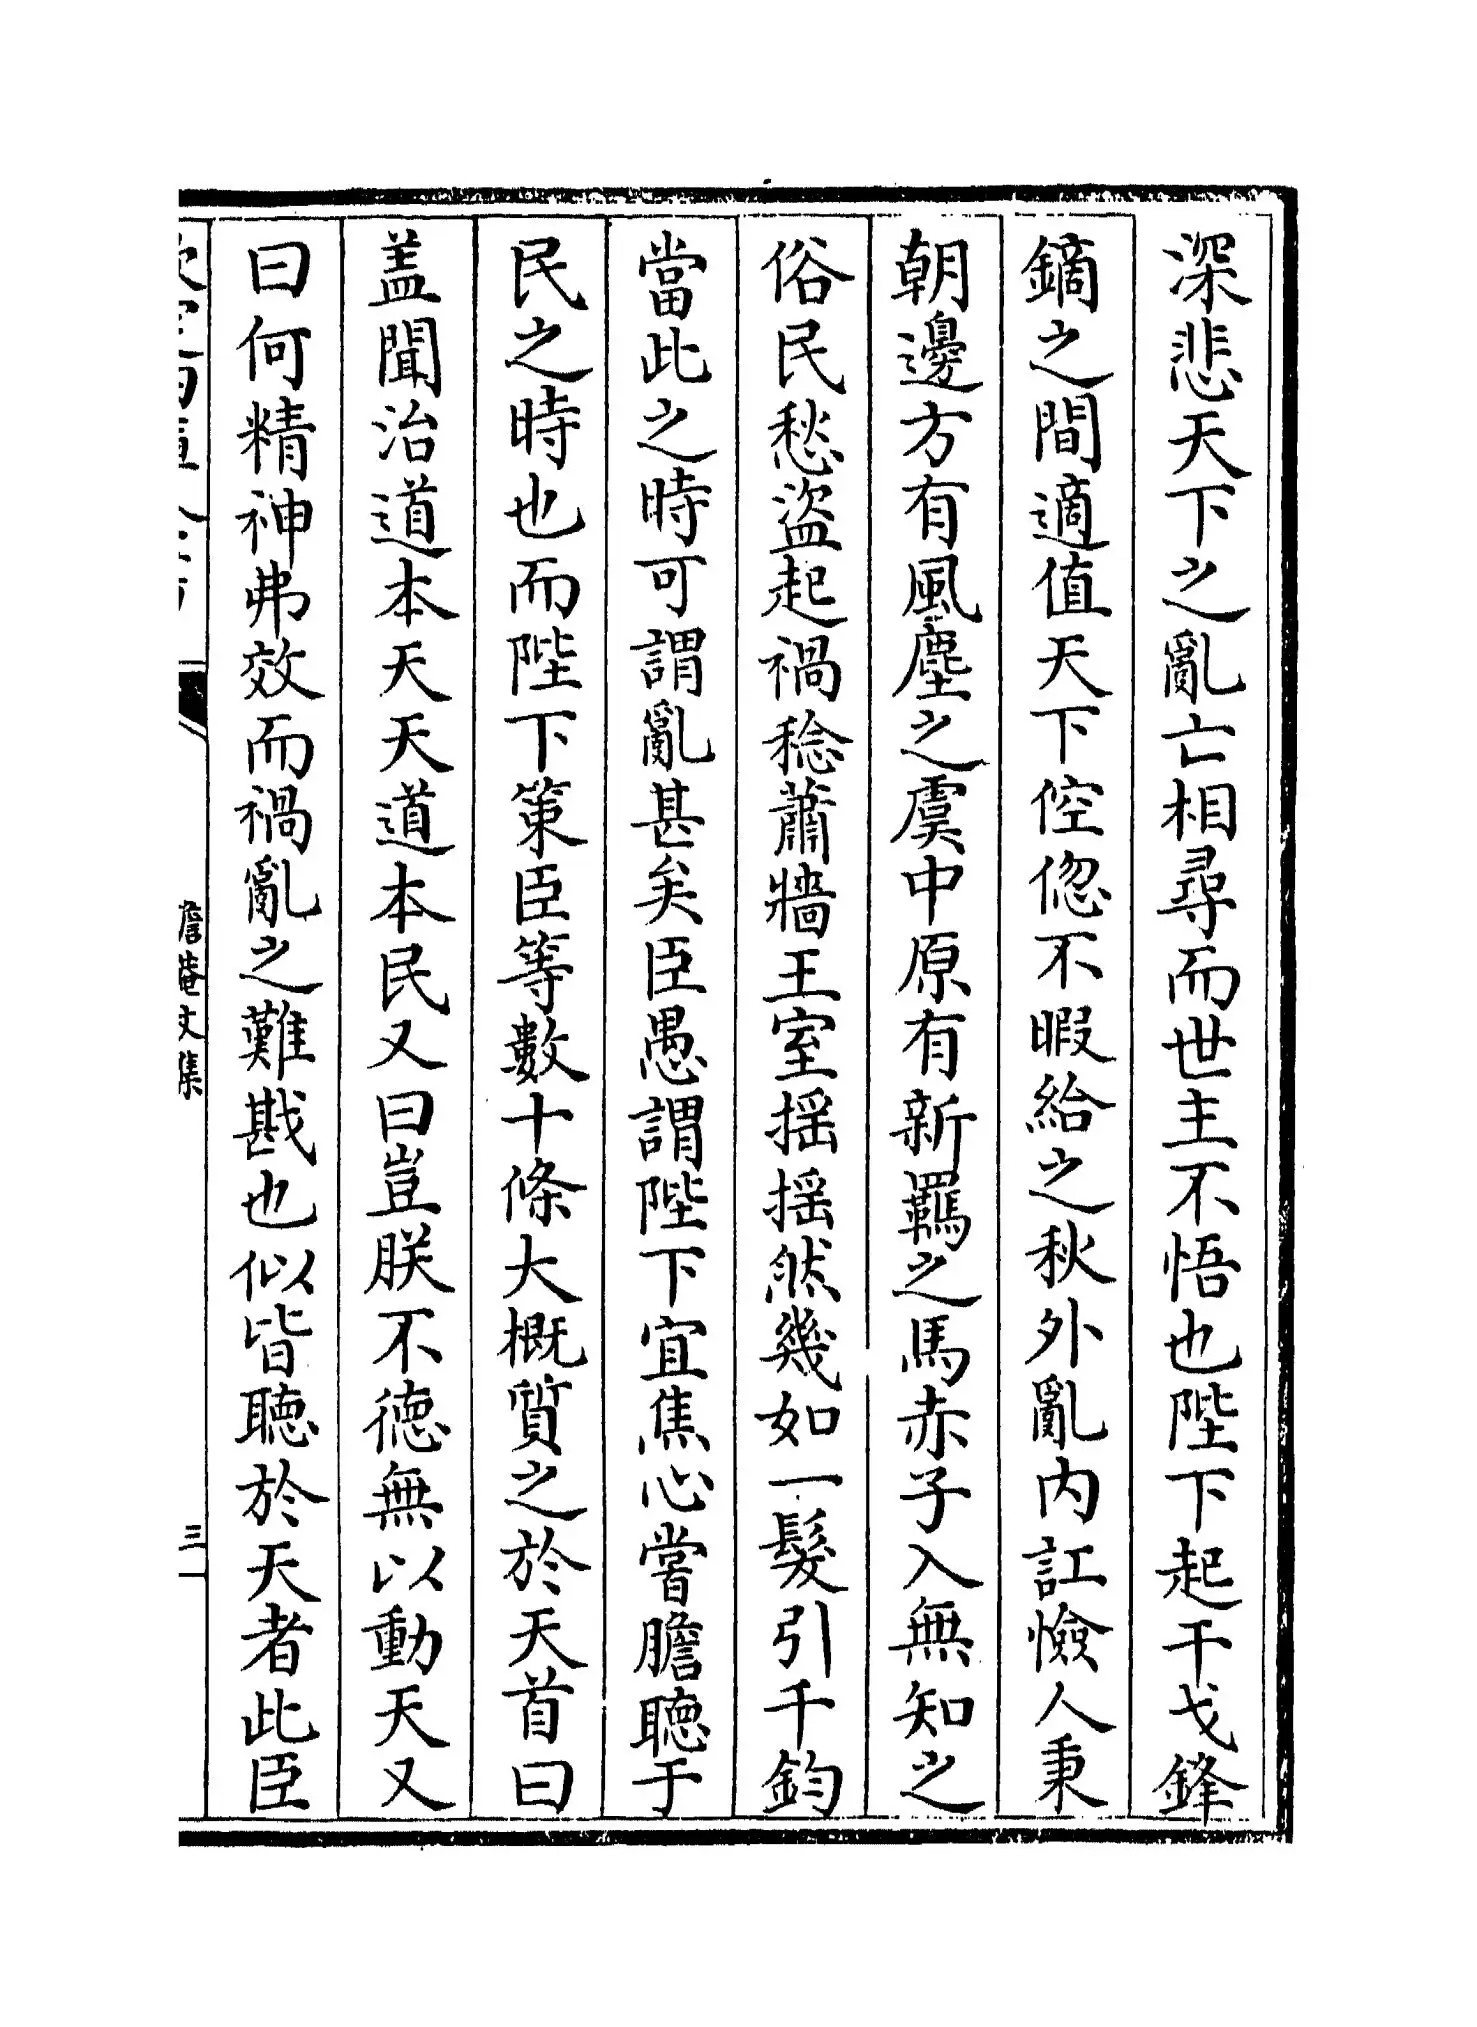 深悲天下之亂亡相尋而世主不悟也陛下起干戈鋒
鏑之間適值天下倥偬不暇給之秋外亂内訌憸人秉
朝邊方有風塵之虞中原有新羈之馬赤子入無知之
俗民愁盜起禍稔蕭牆王室揺揺然幾如一髮引千鈞
當此之時可謂亂甚矣臣愚謂陛下宜焦心嘗膽聴于
民之時也而陛下策臣等數十條大概質之於天首曰
盖聞治道本天天道本民又曰豈朕不徳無以動天又
曰何精神弗效而禍亂之難戡也似皆聴於天者此臣
澹菴文集
三